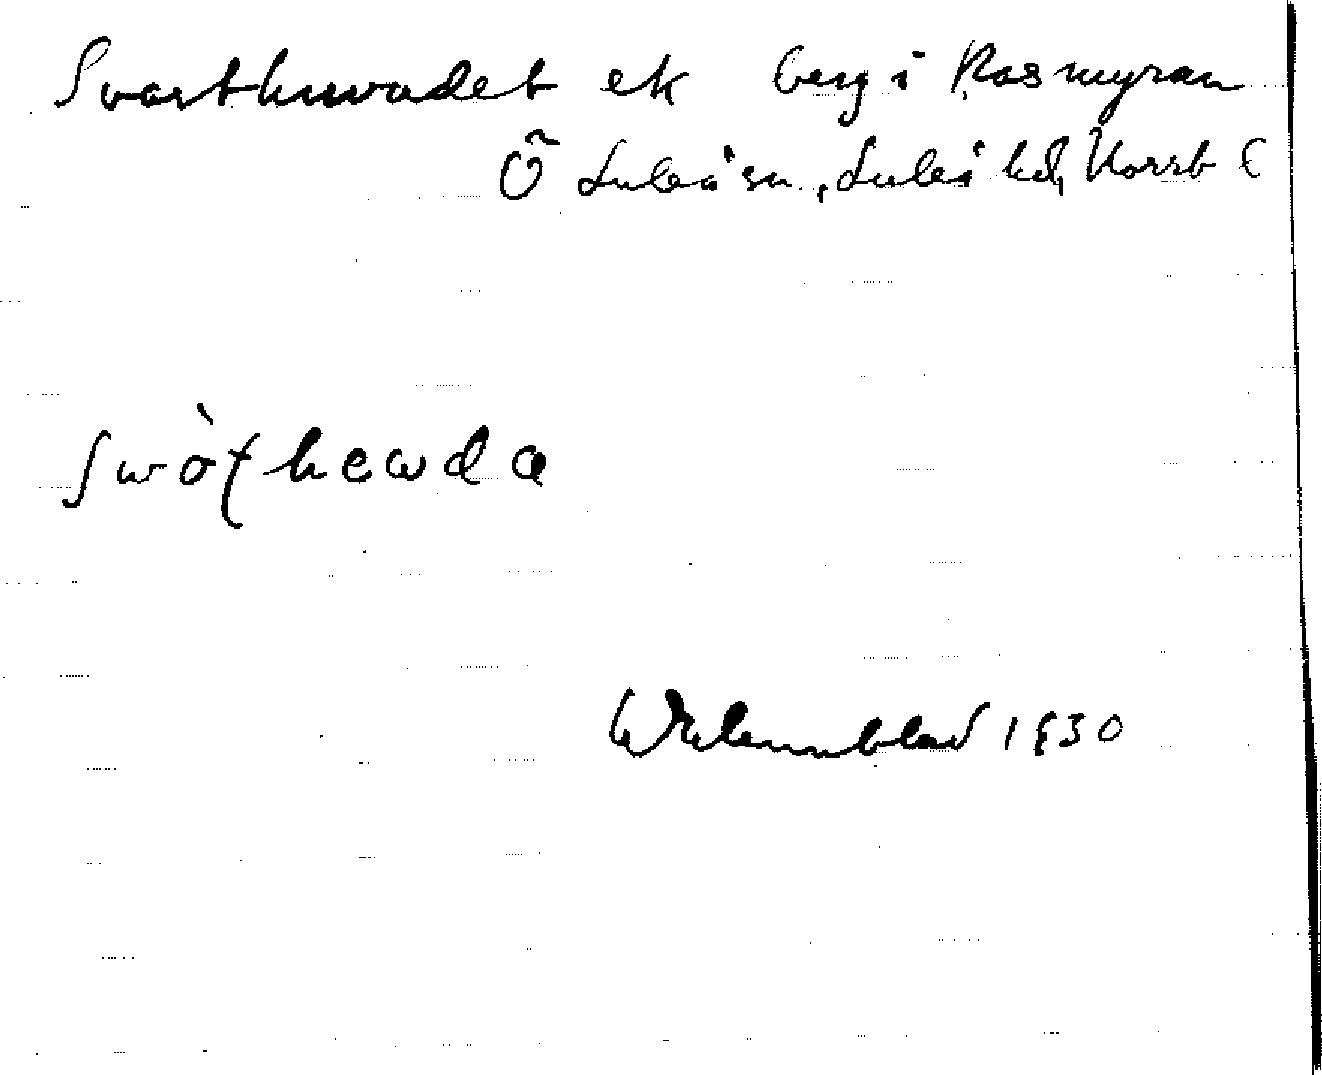 Svarthuvudet ek berg i Rosmyran
Ö Luleå sn, Luleå hd, Norrb l
swòţhewda
Wahlennblad 1930